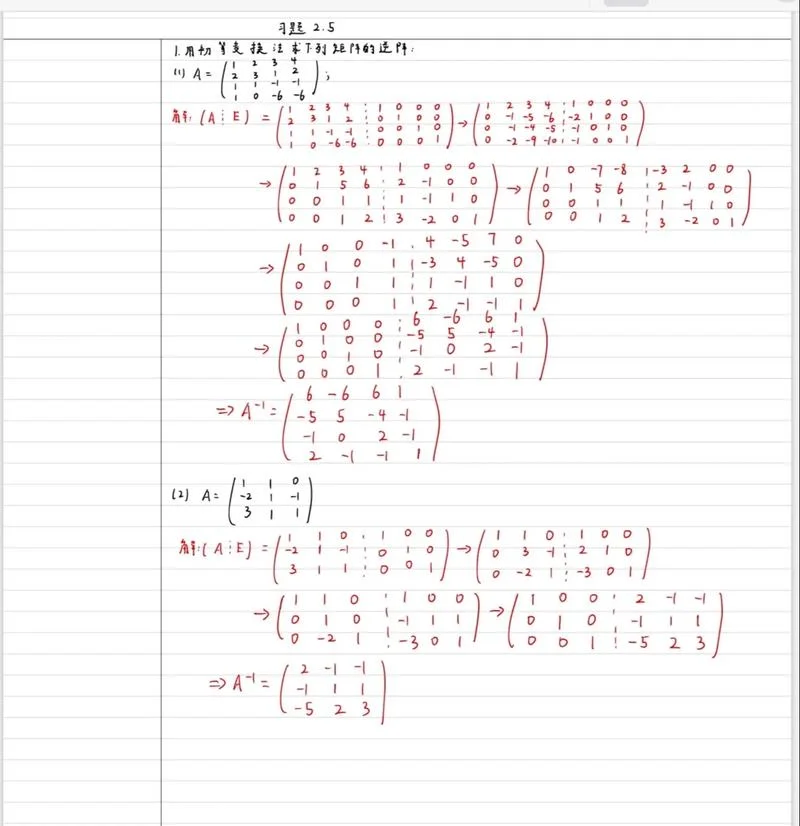 习题 2.5
1. 用初等变换法求下列矩阵的逆阵:
(1) A = ( 1 2 3 4
2 3 1 2
1 1 -1 -1
1 0 -6 -6 ) ;
解: (A ⋮ E) = ( 1 2 3 4 ⋮ 1 0 0 0
2 3 1 2 ⋮ 0 1 0 0
1 1 -1 -1 ⋮ 0 0 1 0
1 0 -6 -6 ⋮ 0 0 0 1 ) → ( 1 2 3 4 ⋮ 1 0 0 0
0 -1 -5 -6 ⋮ -2 1 0 0
0 -1 -4 -5 ⋮ -1 0 1 0
0 -2 -9 -10 ⋮ -1 0 0 1 )
→ ( 1 2 3 4 ⋮ 1 0 0 0
0 1 5 6 ⋮ 2 -1 0 0
0 0 1 1 ⋮ 1 -1 1 0
0 0 1 2 ⋮ 3 -2 0 1 ) → ( 1 0 -7 -8 ⋮ -3 2 0 0
0 1 5 6 ⋮ 2 -1 0 0
0 0 1 1 ⋮ 1 -1 1 0
0 0 1 2 ⋮ 3 -2 0 1 )
→ ( 1 0 0 -1 ⋮ 4 -5 7 0
0 1 0 1 ⋮ -3 4 -5 0
0 0 1 1 ⋮ 1 -1 1 0
0 0 0 1 ⋮ 2 -1 -1 1 )
→ ( 1 0 0 0 ⋮ 6 -6 6 1
0 1 0 0 ⋮ -5 5 -4 -1
0 0 1 0 ⋮ -1 0 2 -1
0 0 0 1 ⋮ 2 -1 -1 1 )
⇒ A⁻¹ = ( 6 -6 6 1
-5 5 -4 -1
-1 0 2 -1
2 -1 -1 1 )
(2) A = ( 1 1 0
-2 1 -1
3 1 1 )
解: (A ⋮ E) = ( 1 1 0 ⋮ 1 0 0
-2 1 -1 ⋮ 0 1 0
3 1 1 ⋮ 0 0 1 ) → ( 1 1 0 ⋮ 1 0 0
0 3 -1 ⋮ 2 1 0
0 -2 1 ⋮ -3 0 1 )
→ ( 1 1 0 ⋮ 1 0 0
0 1 0 ⋮ -1 1 1
0 -2 1 ⋮ -3 0 1 ) → ( 1 0 0 ⋮ 2 -1 -1
0 1 0 ⋮ -1 1 1
0 0 1 ⋮ -5 2 3 )
⇒ A⁻¹ = ( 2 -1 -1
-1 1 1
-5 2 3 )